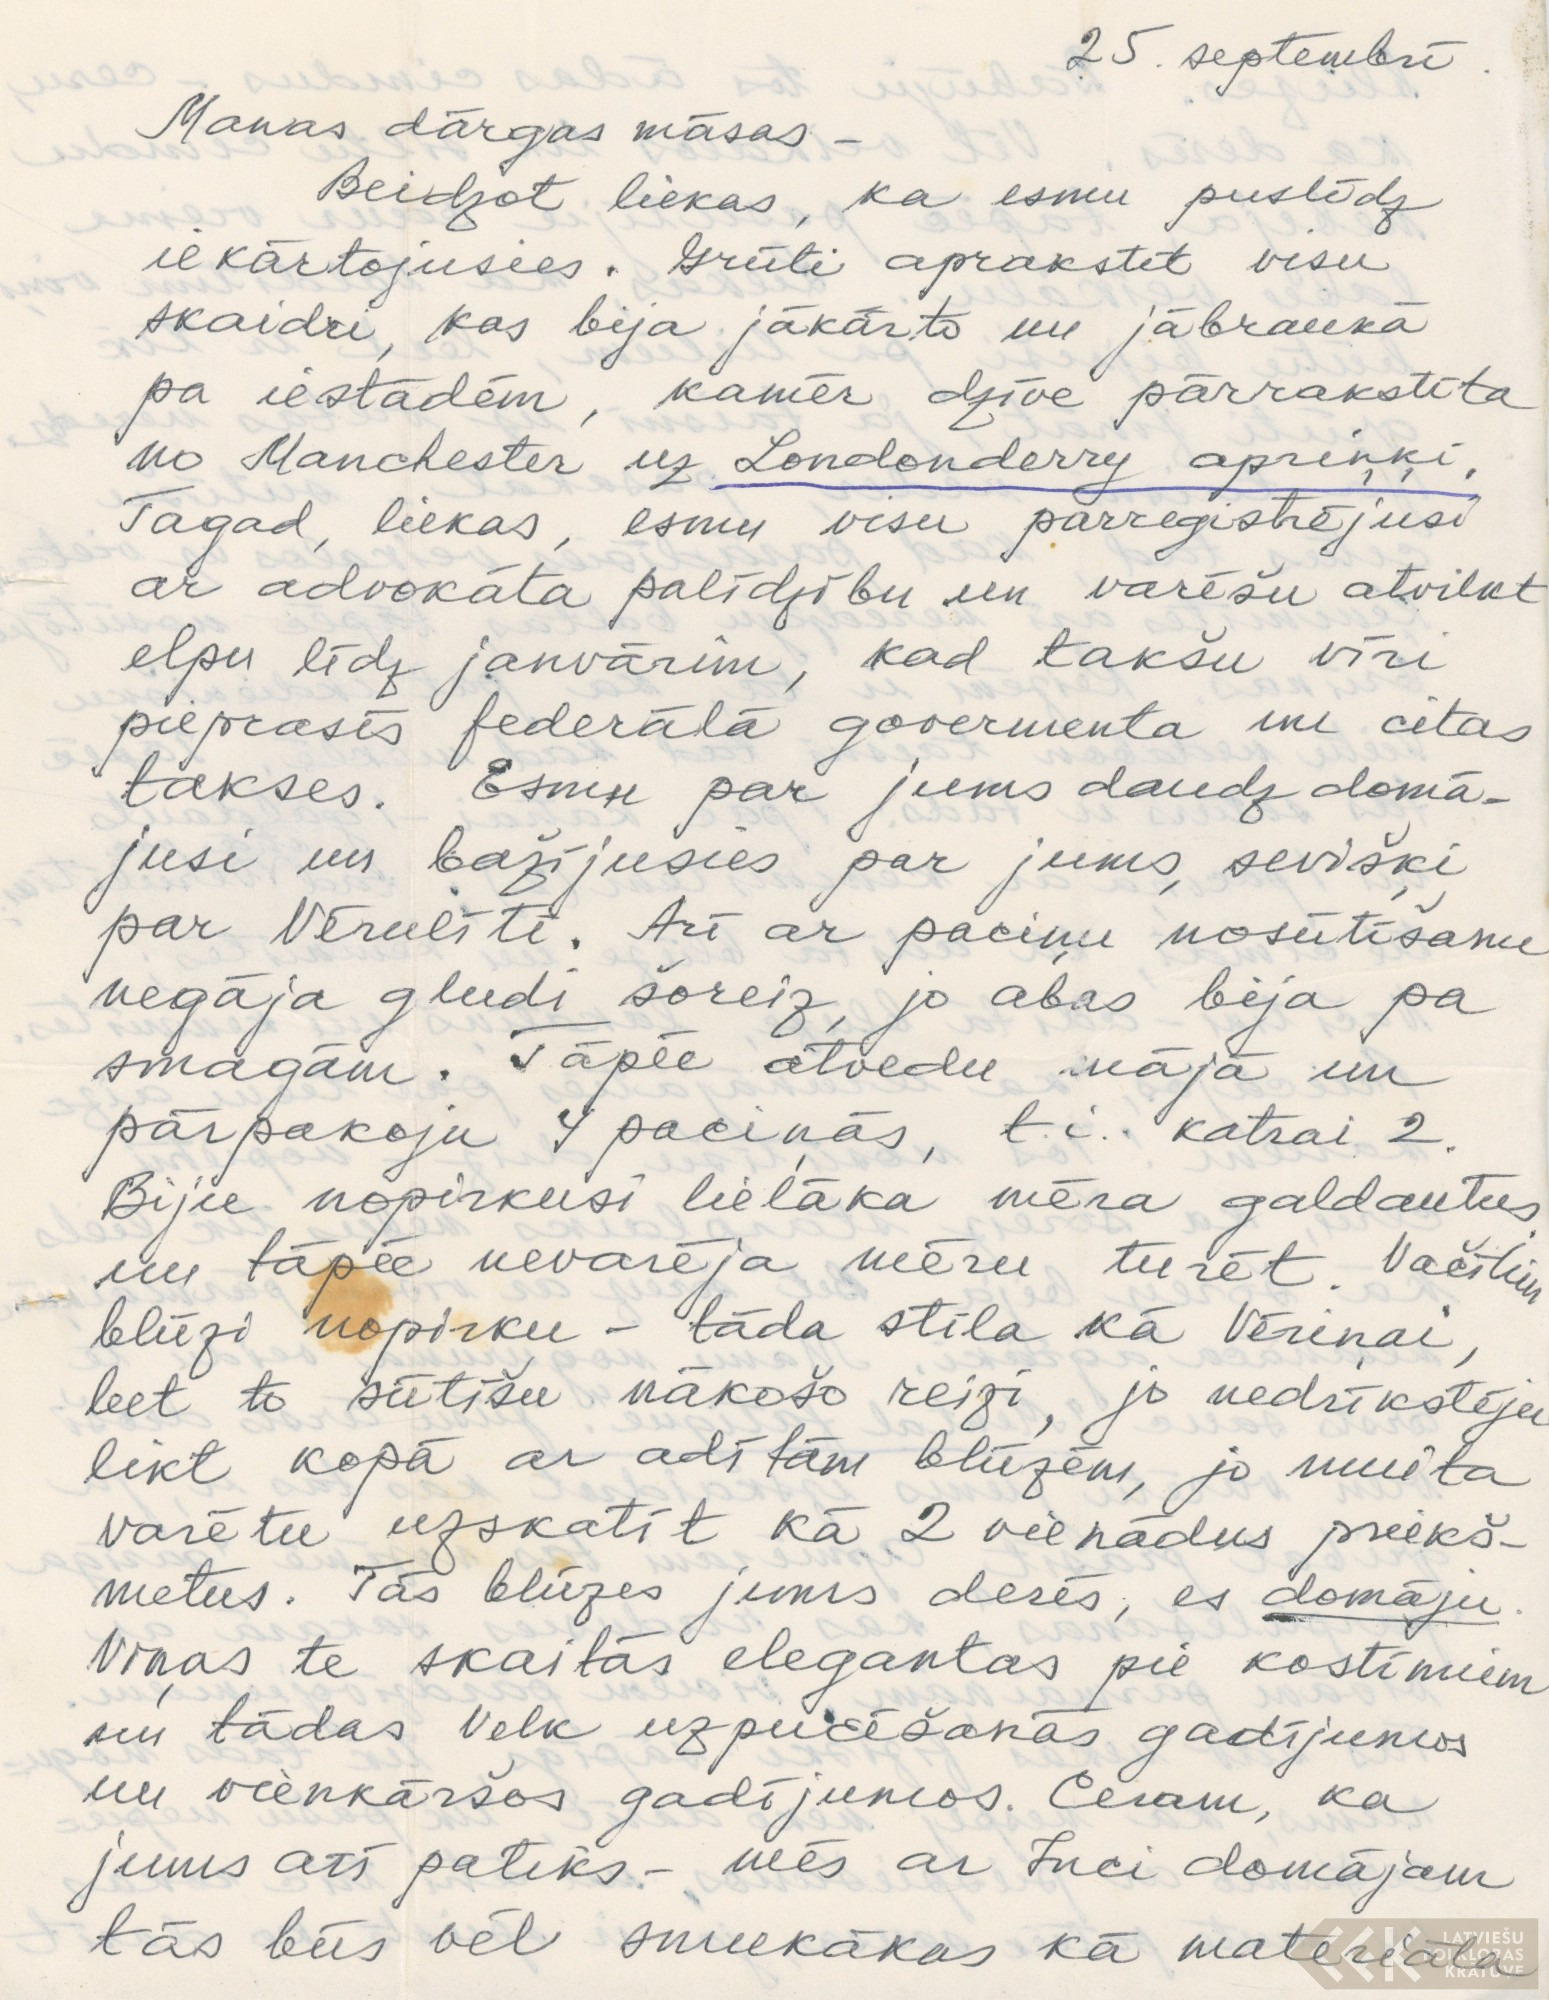 25. septembrī.
Manas dārgas māsas –
Beidzot liekas, ka esmu puslīdz
iekārtojusies. Grūti aprakstīt visu
skaidri, kas bija jākārto un jābraukā
pa iestādēm, kamēr dzīve pārrakstīta
no Manchester uz Londonderry apriņķi.
Tagad, liekas, esmu visu pārreģistrējusi
ar advokāta palīdzību un varēšu atvilkt
elpu līdz janvārim, kad takšu vīri
pieprasīs federālā govermenta un citas
takses. Esmu par jums daudz domā-
jusi un bažījusies par jums, sevišķi
par Vērulīti. Arī ar paciņu nosūtīšanu
negāja gludi šoreiz, jo abas bija pa
smagām. Tāpēc atvedu mājā un
pārpakoju 4 paciņās, t.i. katrai 2.
Biju nopirkusi lielāka mēra galdautus
un tāpēc nevarēja mēru turēt. Vačītim
blūzi nopirku – tāda stila kā Vēriņai,
bet to sūtīšu nākošo reizi, jo nedrīkstēju
likt kopā ar adītām blūzēm, jo muita
varētu uzskatīt kā 2 vienādus priekš-
metus. Tās blūzes jums derēs, es domāju.
Viņas te skaitās elegantas pie kostīmiem
un tādas velk uzpucēšanās gadījumos
un vienkāršos gadījumos. Ceram, ka
jums arī patiks – mēs ar Inci domājam
tās būs vēl smukākas kā materiāla
LATVIEŠU
FOLKLORAS
KRĀTUVE